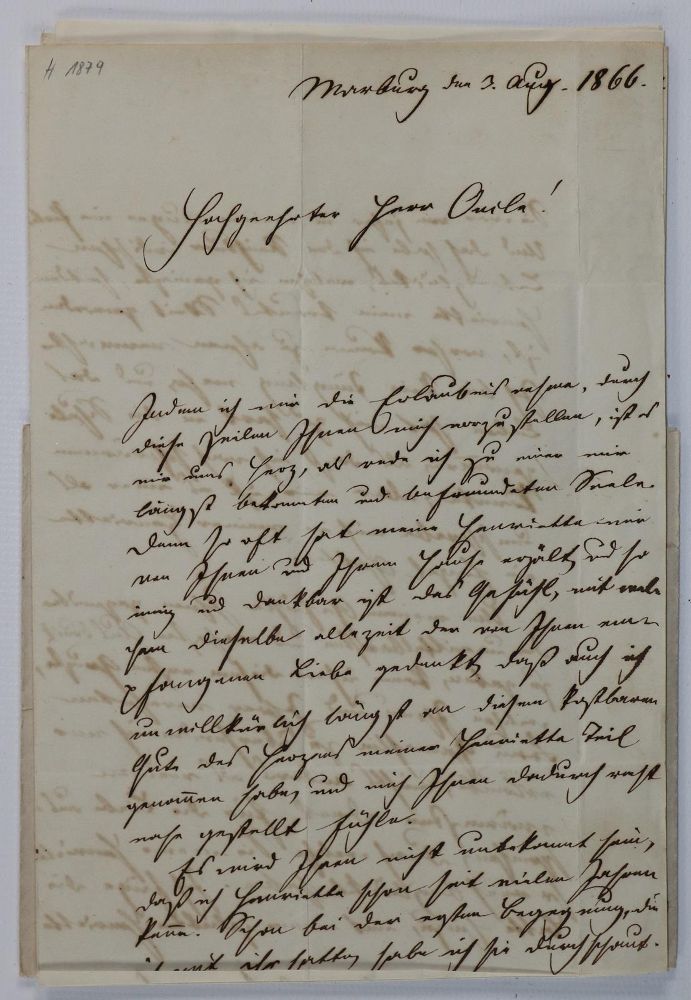 H 1879
Marburg den 3. Aug. 1866.
Hochgeehrter Herr Onile!
Indem ich mir die Erlaubnis nehme, durch
diese Zeilen Ihnen mich vorzustellen, ist es
mir ums Herz, als rede ich zu einer mir
längst bekannten und befreundeten Seele.
Denn so oft hat meine Henriette mir
von Ihnen und Ihrem Hause erzält, und so
innig und dankbar ist das Gefühl, mit wel-
chem dieselbe allezeit der von Ihnen em-
pfangenen Liebe gedenkt, daß auch ich
unwillkürlich längst an diesem kostbaren
Gute des Herzens meiner Henriette Teil
genommen habe, und mich Ihnen dadurch recht
nahe gestellt fühle.
Es wird Ihnen nicht unbekannt sein,
daß ich Henriette schon seit vielen Jahren
kenne. Schon bei der ersten Begegnung, die
ich mit ihr hatte, habe ich sie durchschaut.